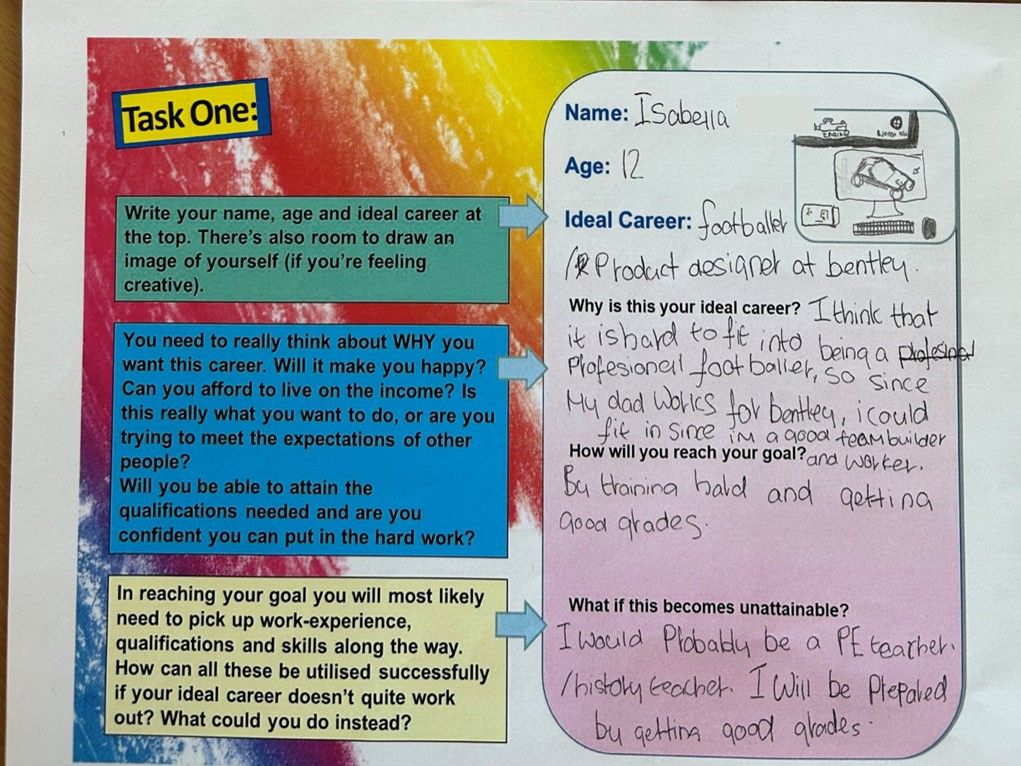 Task One:
Write your name, age and ideal career at
the top. There's also room to draw an
image of yourself (if you're feeling
creative).
You need to really think about WHY you
want this career. Will it make you happy?
Can you afford to live on the income? Is
this really what you want to do, or are you
trying to meet the expectations of other
people?
Will you be able to attain the
qualifications needed and are you
confident you can put in the hard work?
In reaching your goal you will most likely
need to pick up work-experience,
qualifications and skills along the way.
How can all these be utilised successfully
if your ideal career doesn't quite work
out? What could you do instead?
Name: Isabella
Age: 12
Ideal Career: footballer
/ Product designer at bentley.
Why is this your ideal career? I think that
it is hard to fit into being a profesinal
Profesional footballer, so since
My dad works for bentley, i could
fit in since im a good teambuilder
How will you reach your goal? and worker.
By training hard and getting
good grades.
What if this becomes unattainable?
I would Probably be a PE teacher.
/history teacher. I will be Prepared
by getting good grades.